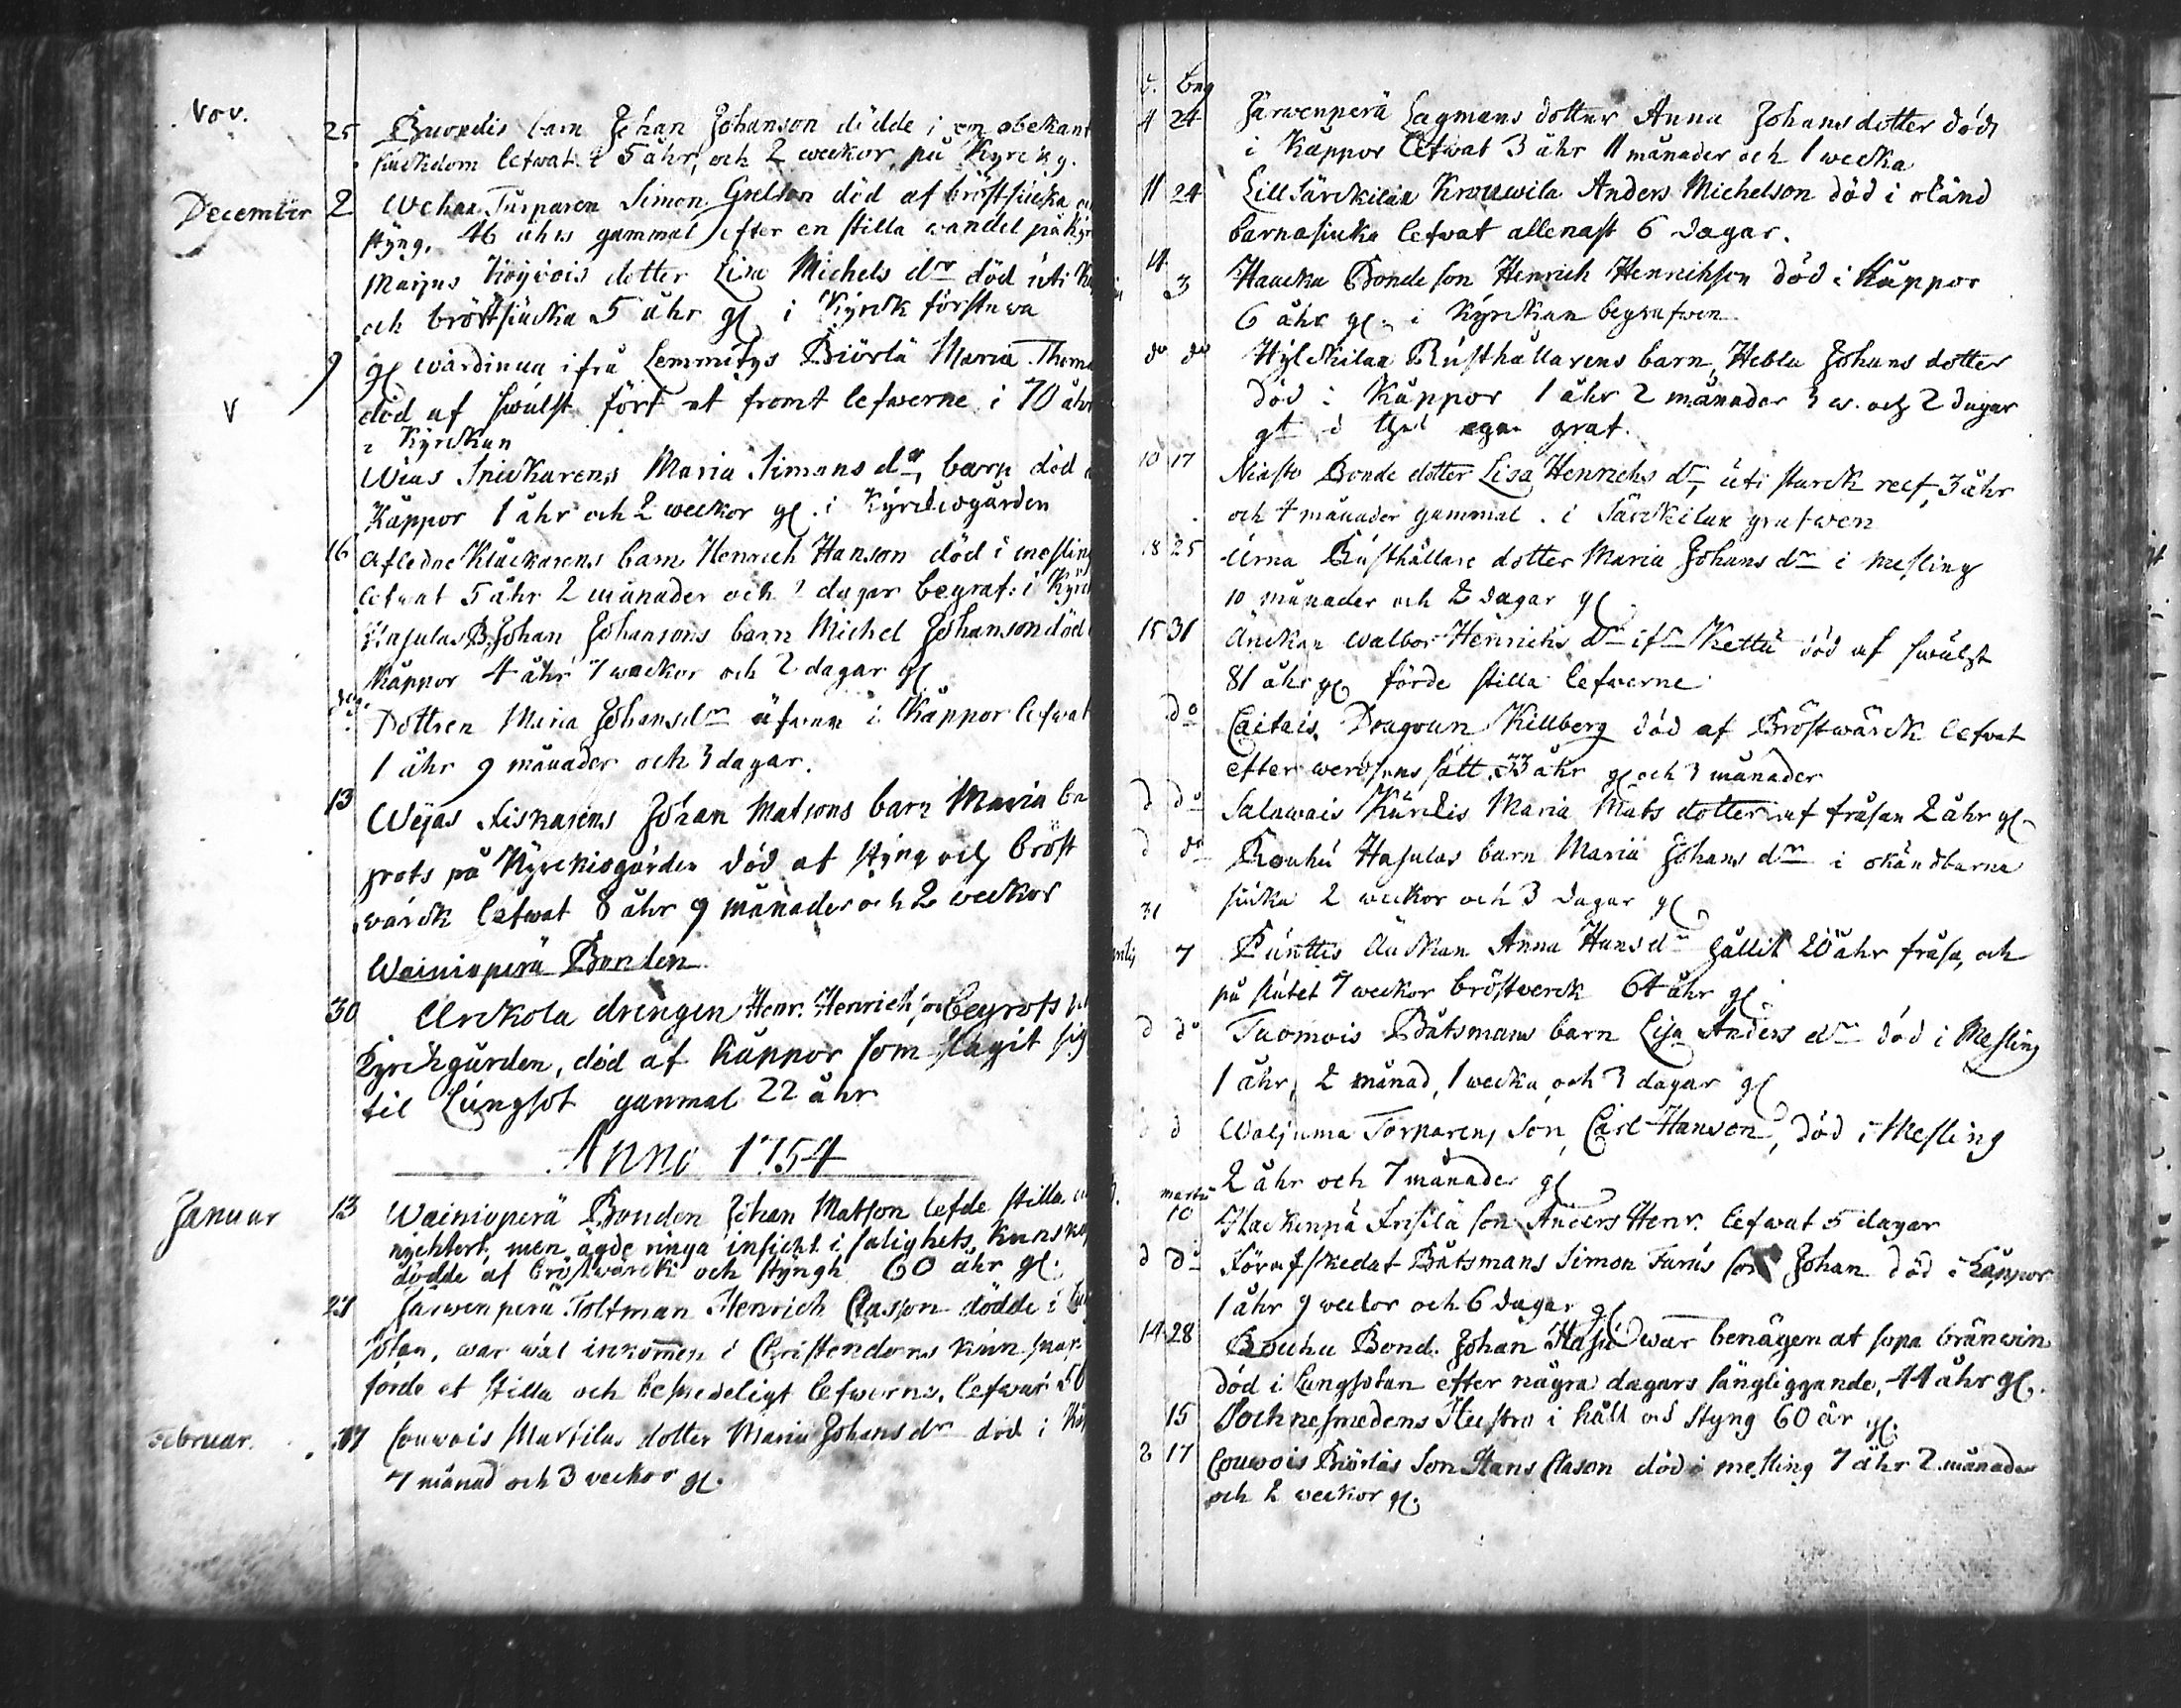 Nov.
25 Buondis barn Johan Johanson dödde i en obekant
siuckdom lefwat 5 åhr, och 2 weckor, på Kyrckg.
December 2 Wehan Turparen Simon Grelson död af bröstsiucka
styng, 46 åhrs gammal efter en stilla wandel på Kyr
Marjus Höyvois dotter Lisa Michels dr död uti
och bröstsiucka 5 åhr gl i Kyrck förstuwa
9 gl wärdinna ifrå Lemmitys Biörlä Maria Thom
död af swulst fört et fromt lefwerne i 70 åhr
i Kyrckan
Wias Snickarens Maria Simons dr, barn död
Kåppor 1 åhr och 2 weckor gl. i Kyrckiogården
16 Afledne Klåckarens barn Henrich Hanson död i mesling
lefwat 5 åhr 2 månader och 2 dagar begraf: i Kyrck
Hasulas B. Johan Johansons barn Michel Johanson död
Kåppor 4 åhr 7 weckor och 2 dagar gl
Dottren Maria Johansdr äfwen i Kåppor lefwat
1 åhr 9 månader och 3 dagar.
13 Weyas Fiskarens Johan Matsons barn Maria be
grofs på Kyrckiogården död af styng och bröst
wärck lefwat 8 åhr 9 månader och 2 weckor
Wainioperä Bonden
30 Urckola drengen Henr. Henrichson begrofs på
Kyrckgården, död af Kåppor som slagit sig
til Lungsot gammal 22 åhr
Anno 1754
Januar 13 Wainioperä Bonden Johan Matson lefde stilla
nychtert, men ägde ringa insicht i salighets kunskap
dödde af bröstwärck och styngh 60 åhr gl.
27 Järwenperä Toltman Henrich Classon dödde i
soten, war wäl inkommen i Christendoms kunskap
förde et stilla och beskedeligt lefwerne, lefwat 50
Februar. 17 Couwois Mattilas dotter Maria Johansdr död i
7 månad och 3 veckor gl.
d. beg
4 24 Järwenperä Lagmans dotter Anna Johansdotter död
i Kåppor lefwat 3 åhr 11 månader och 1 wecka
11 24 Lill Särckilax Krouwila Anders Michelson död i okänd
barnasiucka lefwat allenast 6 dagar.
3 Haucka Bonde son Henrich Henrikson död i Kåppor
6 åhr gl. i Kyrckan begrafwen
do do Hylckilax Rusthållarens barn, Hebla Johans dotter
död i Kåppor 1 åhr 2 månader 3 w. och 2 dagar
gl i egen graf.
10 17 Niasto Bonde dotter Lisa Henrichs dr, uti starck reef, 3 åhr
och 4 månader gammal. i Särckilax grafwen
18 25 Urna Rusthållare dotter Maria Johans dr i mesling
10 månader och 2 dagar gl
15 31 Änckan Walbor Henrichs dr ifrn Kettu död af swulst
81 åhr gl förde stilla lefwerne
do Caitais Dragoun Killberg död af Bröstwärck lefvat
efter werdsens sätt. 33 åhr gl och 3 månader
d do Salawais Kurckis Maria Mats dotter af fråsan 2 åhr gl
d do Rouhu Hasulas barn Maria Johans dr i okänd barna
siucka 2 weckor och 3 dagar gl
31
7 Punttis Änckan Anna Hansdr hållit 20 åhr fråsa, och
på slutet 7 weckor bröstwerck 64 åhr gl
d do Tuomois Båtsmans barn Lisa Anders dr död i Mesling
1 åhr, 2 månad, 1 wecka och 3 dagar gl
d d Waljuma Torparens Son Carl Hanson, död i Mesling
2 åhr och 7 månader gl
martii
10 Hackenpä Frisilä son Anders Henr. lefwat 5 dagar
d do Förafskedat Båtsmans Simon Furus son Johan död i Kåppor
1 åhr 9 weckor och 6 dagar gl
14 28 Rouhu Bond. Johan Hasu war benägen at supa bränwin
död i Lungsotan efter några dagars sängliggande, 44 åhr gl.
15 Sochnesmedens Hustro i håll och styng 60 år gl.
8 17 Couwois Biörläs Son Hans Clason död i mesling 7 åhr 2 månader
och 2 weckor gl.